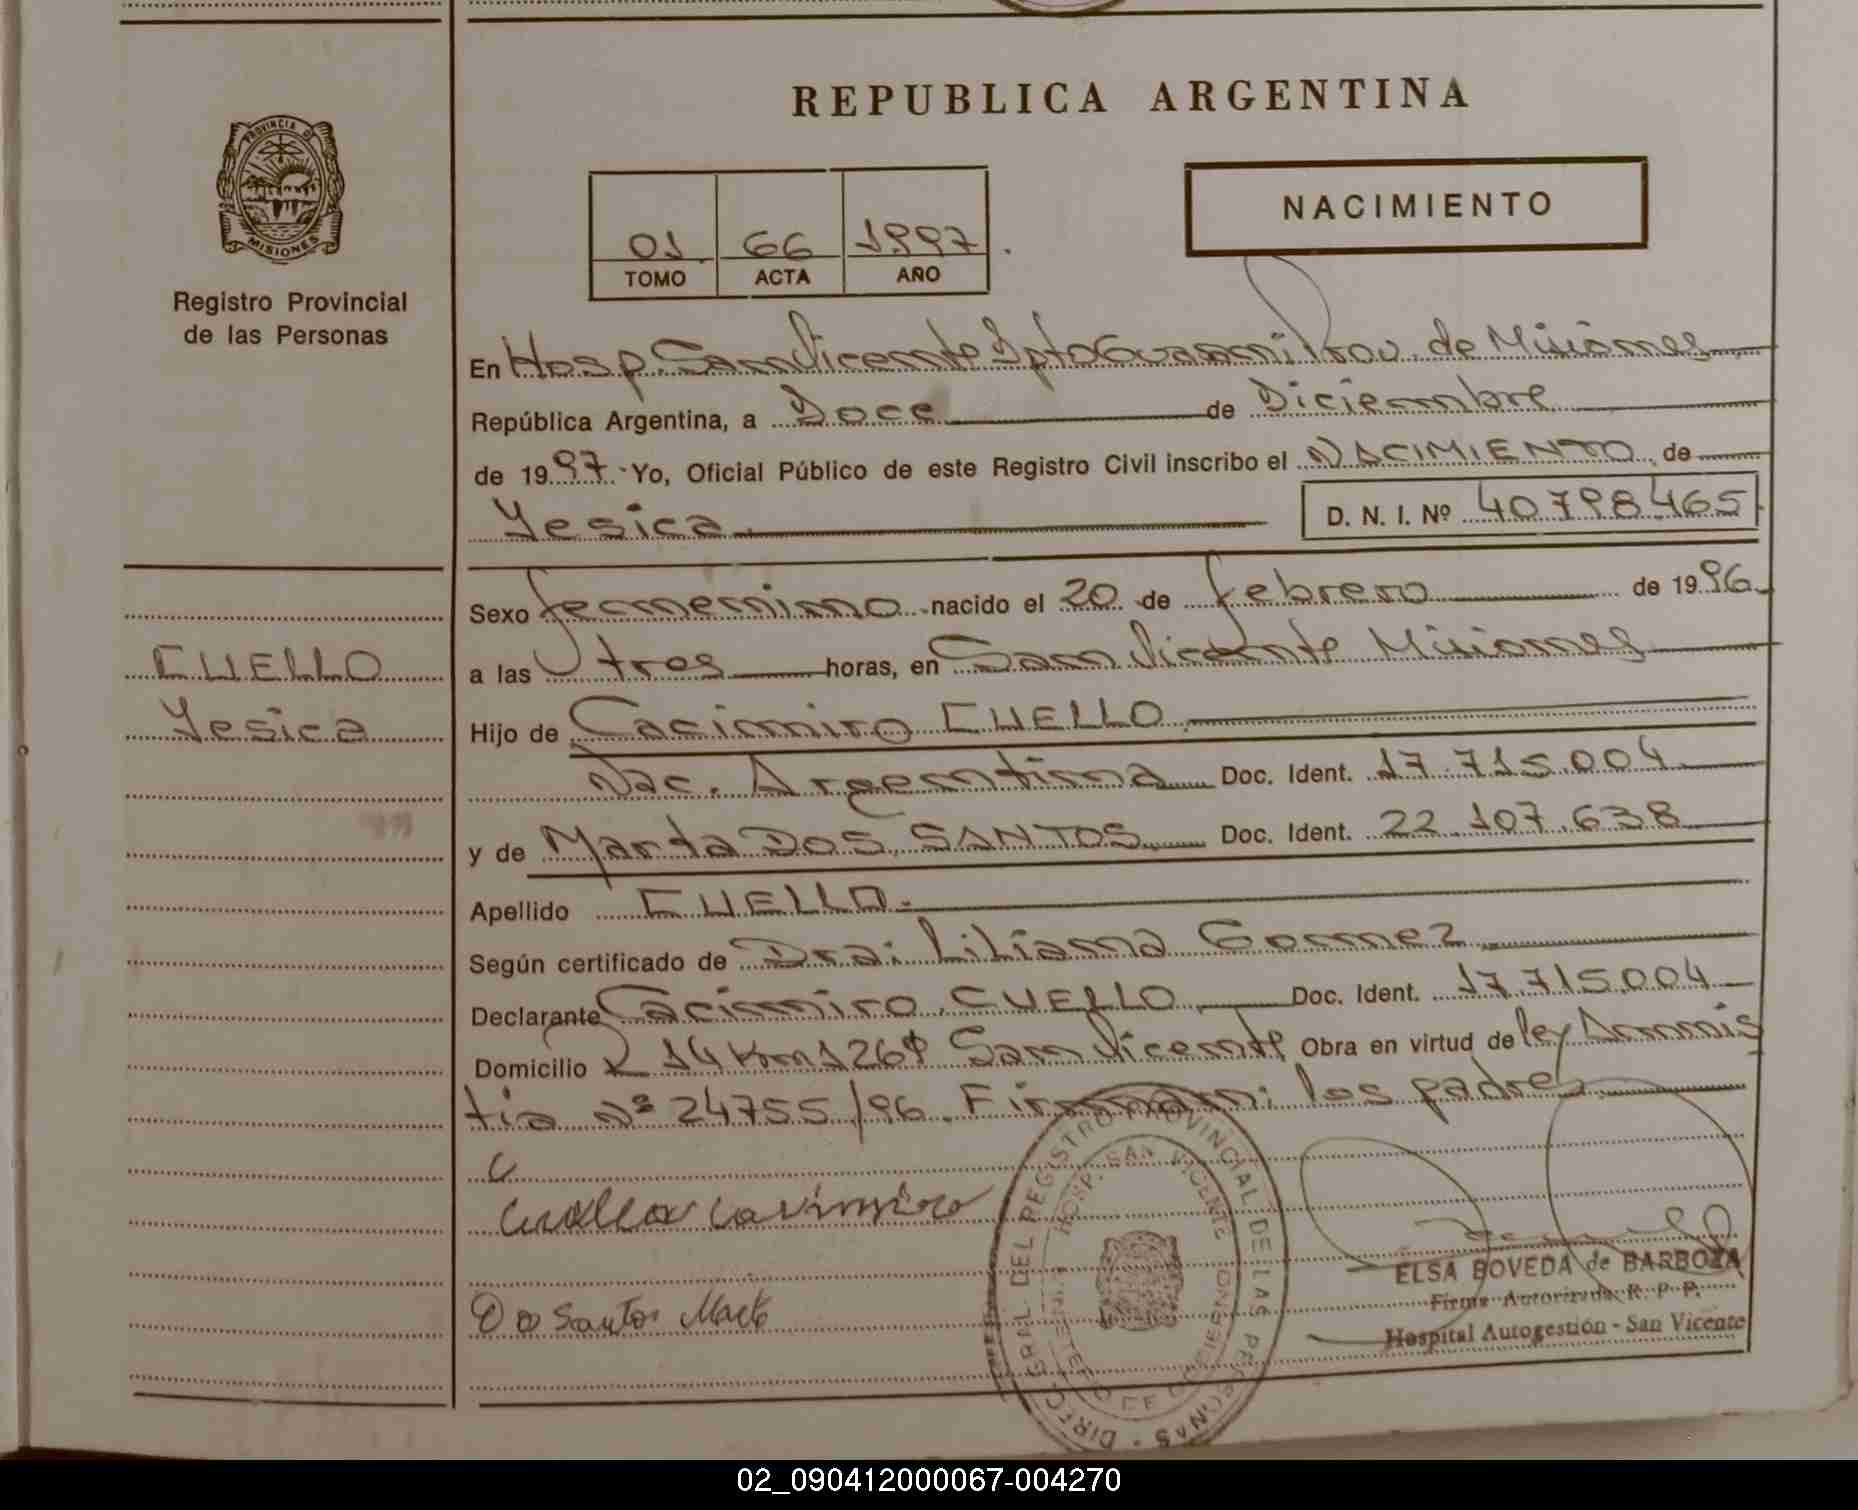 REPUBLICA ARGENTINA
PROVINCIA DE
MISIONES
Registro Provincial
de las Personas
01 66 1997
TOMO ACTA AÑO
NACIMIENTO
En Hosp. San Vicente Dpto Guarani Prov. de Misiones
República Argentina, a Doce de Diciembre
de 1997 Yo, Oficial Público de este Registro Civil inscribo el NACIMIENTO de
Yesica D. N. I. Nº 40798465
CUELLO
Yesica
Sexo femenino nacido el 20 de febrero de 1996
a las tres horas, en San Vicente Misiones
Hijo de Cacimiro CUELLO
Nac. Argentina Doc. Ident. 17.715.004
y de Marta DOS SANTOS Doc. Ident. 22.107.638
Apellido CUELLO.
Según certificado de Dra: Liliana Gomez
Declarante Cacimiro CUELLO Doc. Ident. 17715004
Domicilio R 14 Km 1269 San Vicente Obra en virtud de ley Amnis
tia Nº 24755/96. Firman: los padres
C
Cuello Cacimiro
Dos Santos Marta
DIREC. GRAL DEL REGISTRO PROVINCIAL DE LAS PERSONAS
HOSP. SAN VICENTE
ELSA BOVEDA de BARBOZA
Firma Autorizada R. P. P.
Hospital Autogestión - San Vicente
02_090412000067-004270